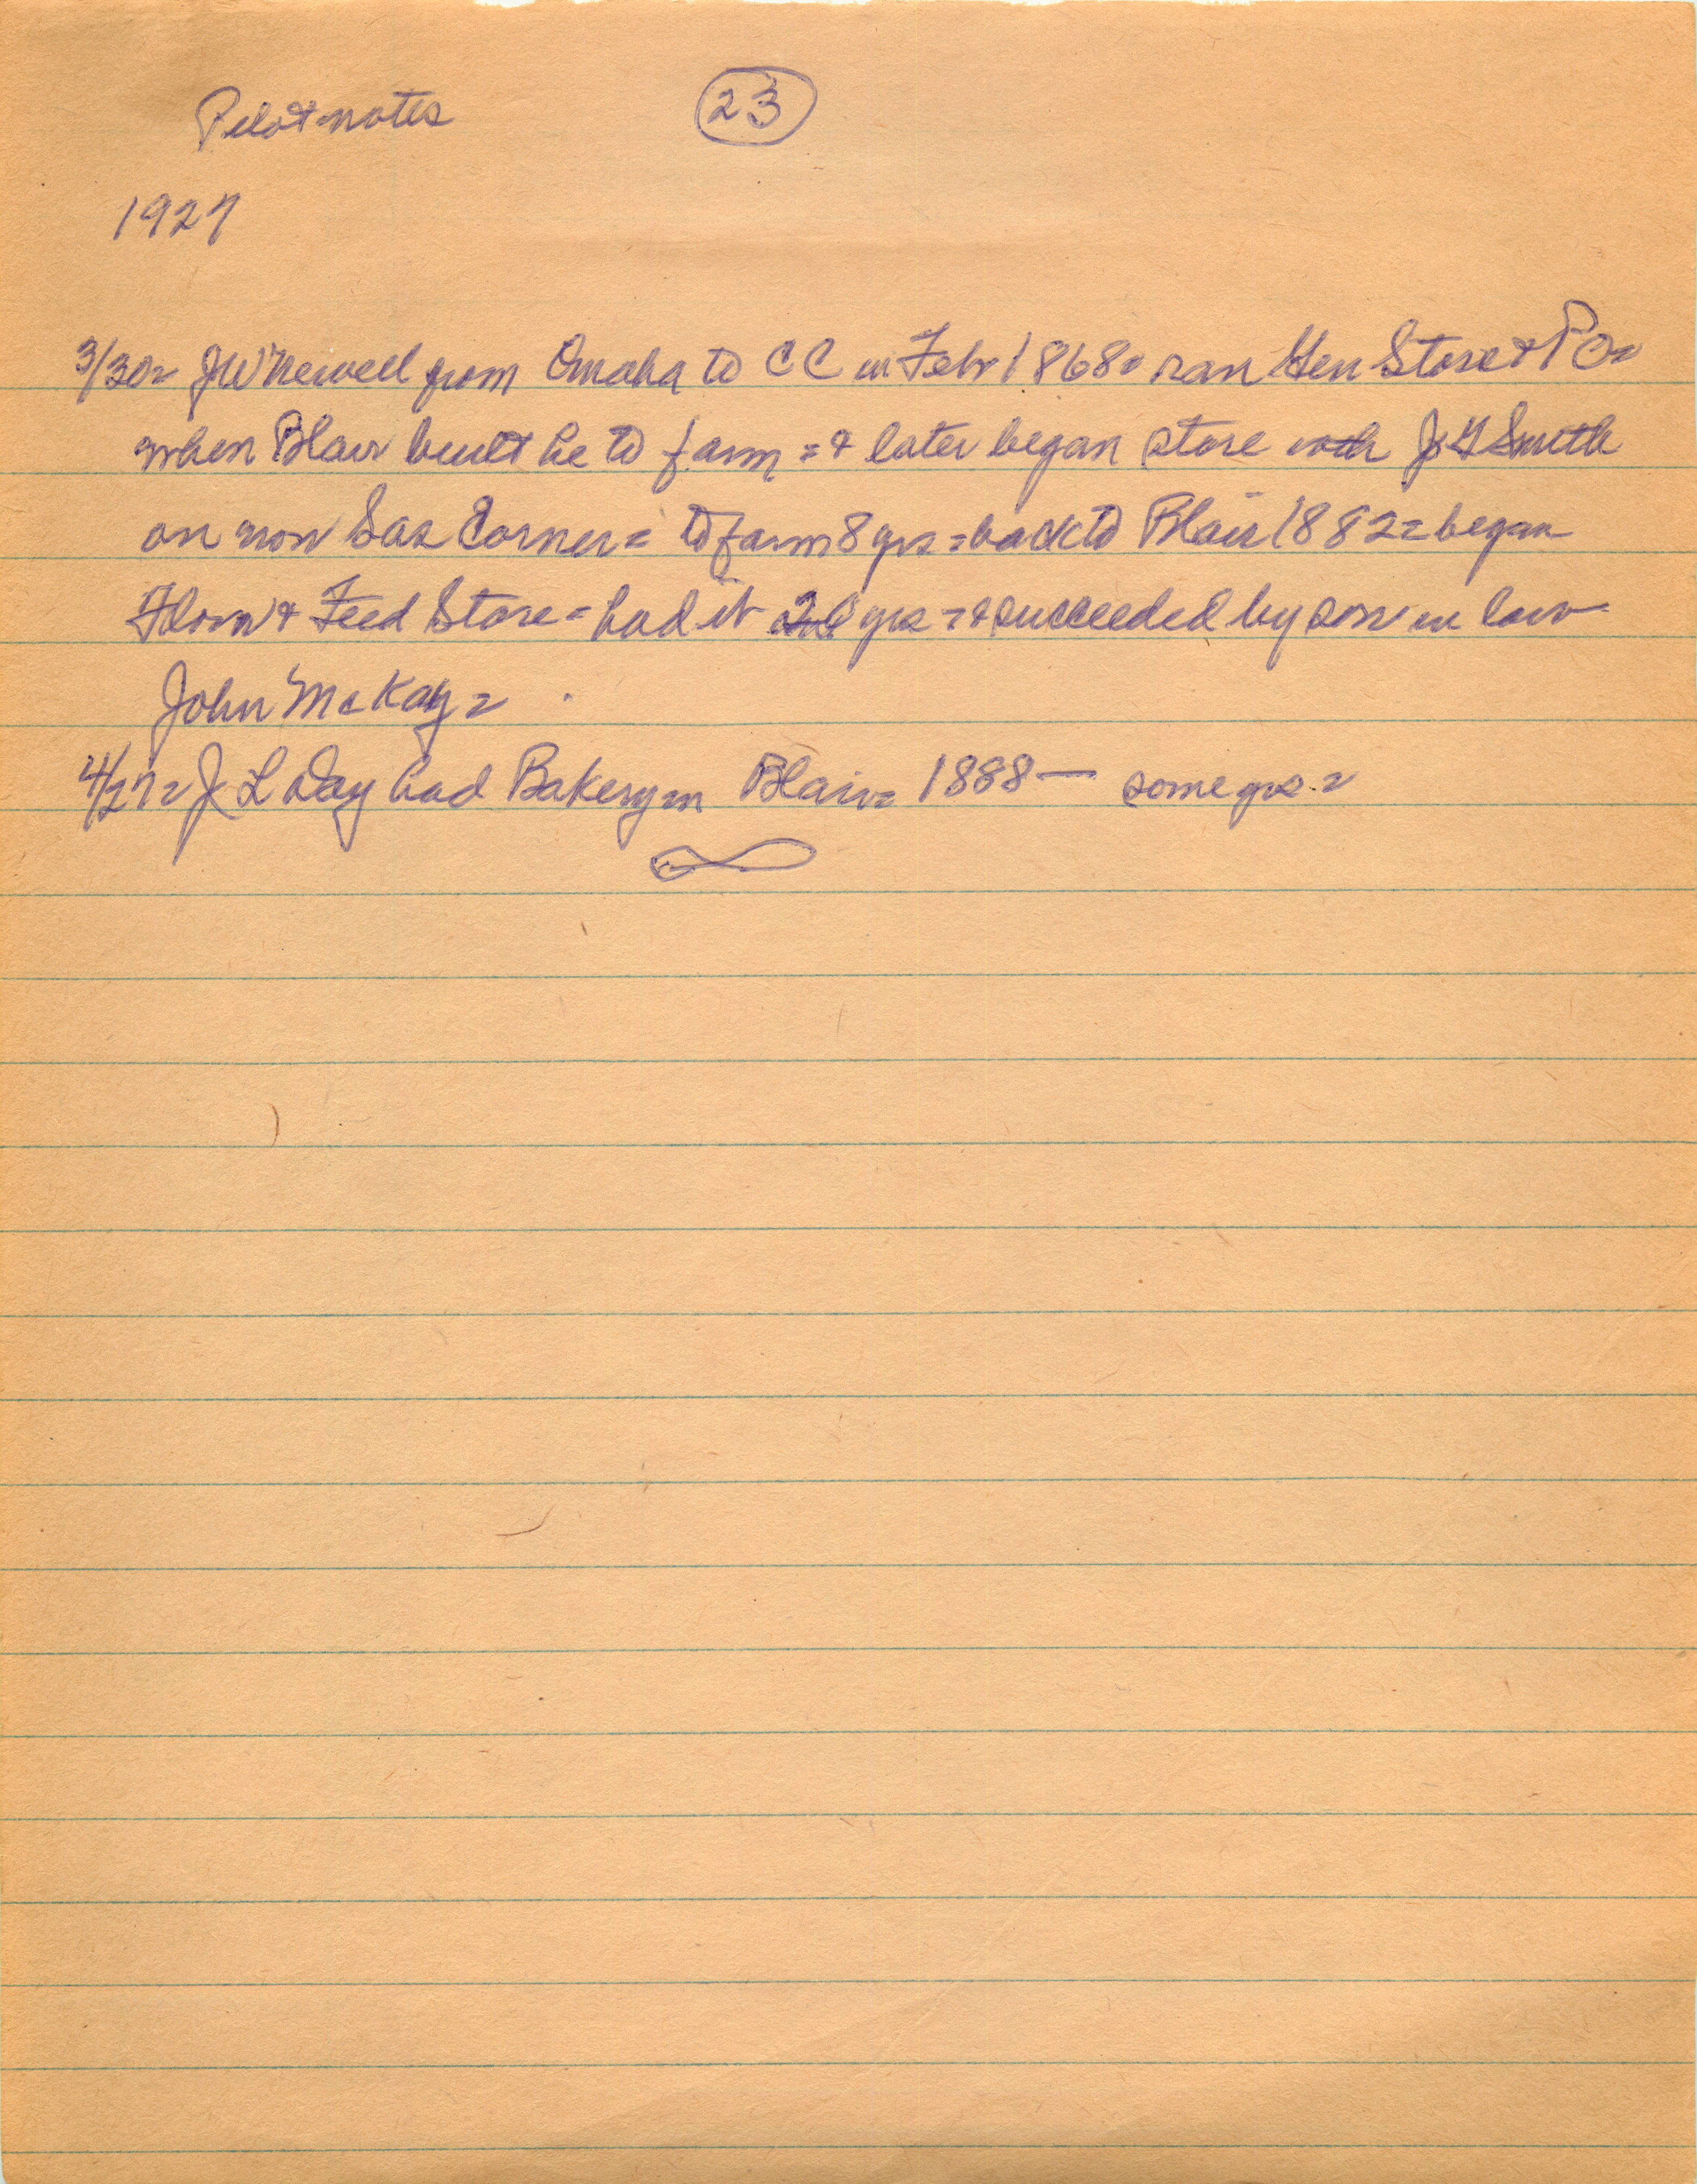 Pilot notes 23
1927
3/30= JW Newell from Omaha to CC in Febr 1868= ran Gen Store & PO=
when Blair built he to farm = & later began store with J Y Smith
on now Sas Corner = to farm 8 yrs = back to Blair 1882 = began
Flour & Feed Store = had it 26 yrs = & succeeded by son in law
John McKay =
4/27= J L Day had Bakery in Blair= 1888 — some yrs =